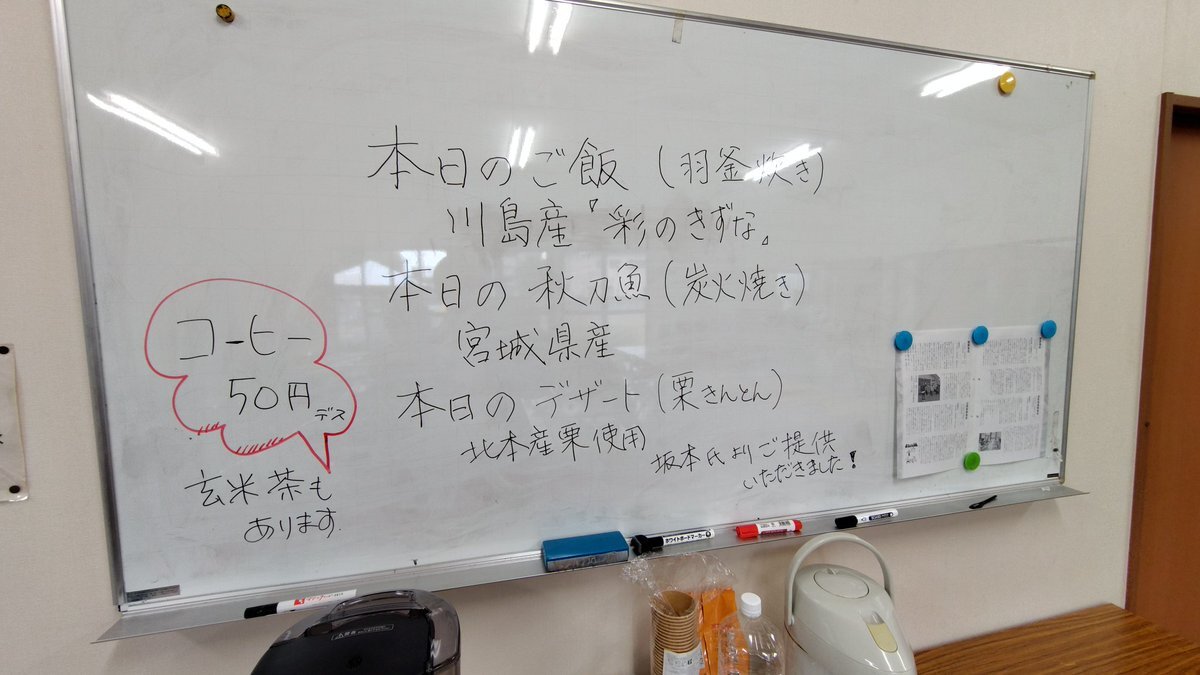 本日のご飯(羽釜炊き)
川島産『彩のきずな』
本日の秋刀魚(炭火焼き)
宮城県産
本日のデザート(栗きんとん)
北本産栗使用
坂本氏よりご提供
いただきました!
コーヒー
50円デス
玄米茶も
あります.
ホワイトボードマーカー